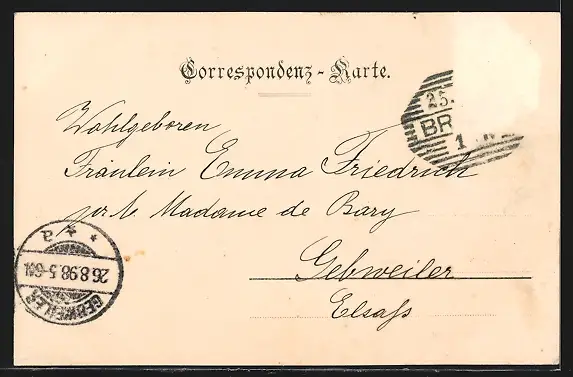 Correspondenz-Karte.
25.
BR
1
Wohlgeboren
Fräulein Emma Friedrich
Madame de Bary
Gebweiler
Elsaß
26.8.98.5-6N.
GEBWEILER